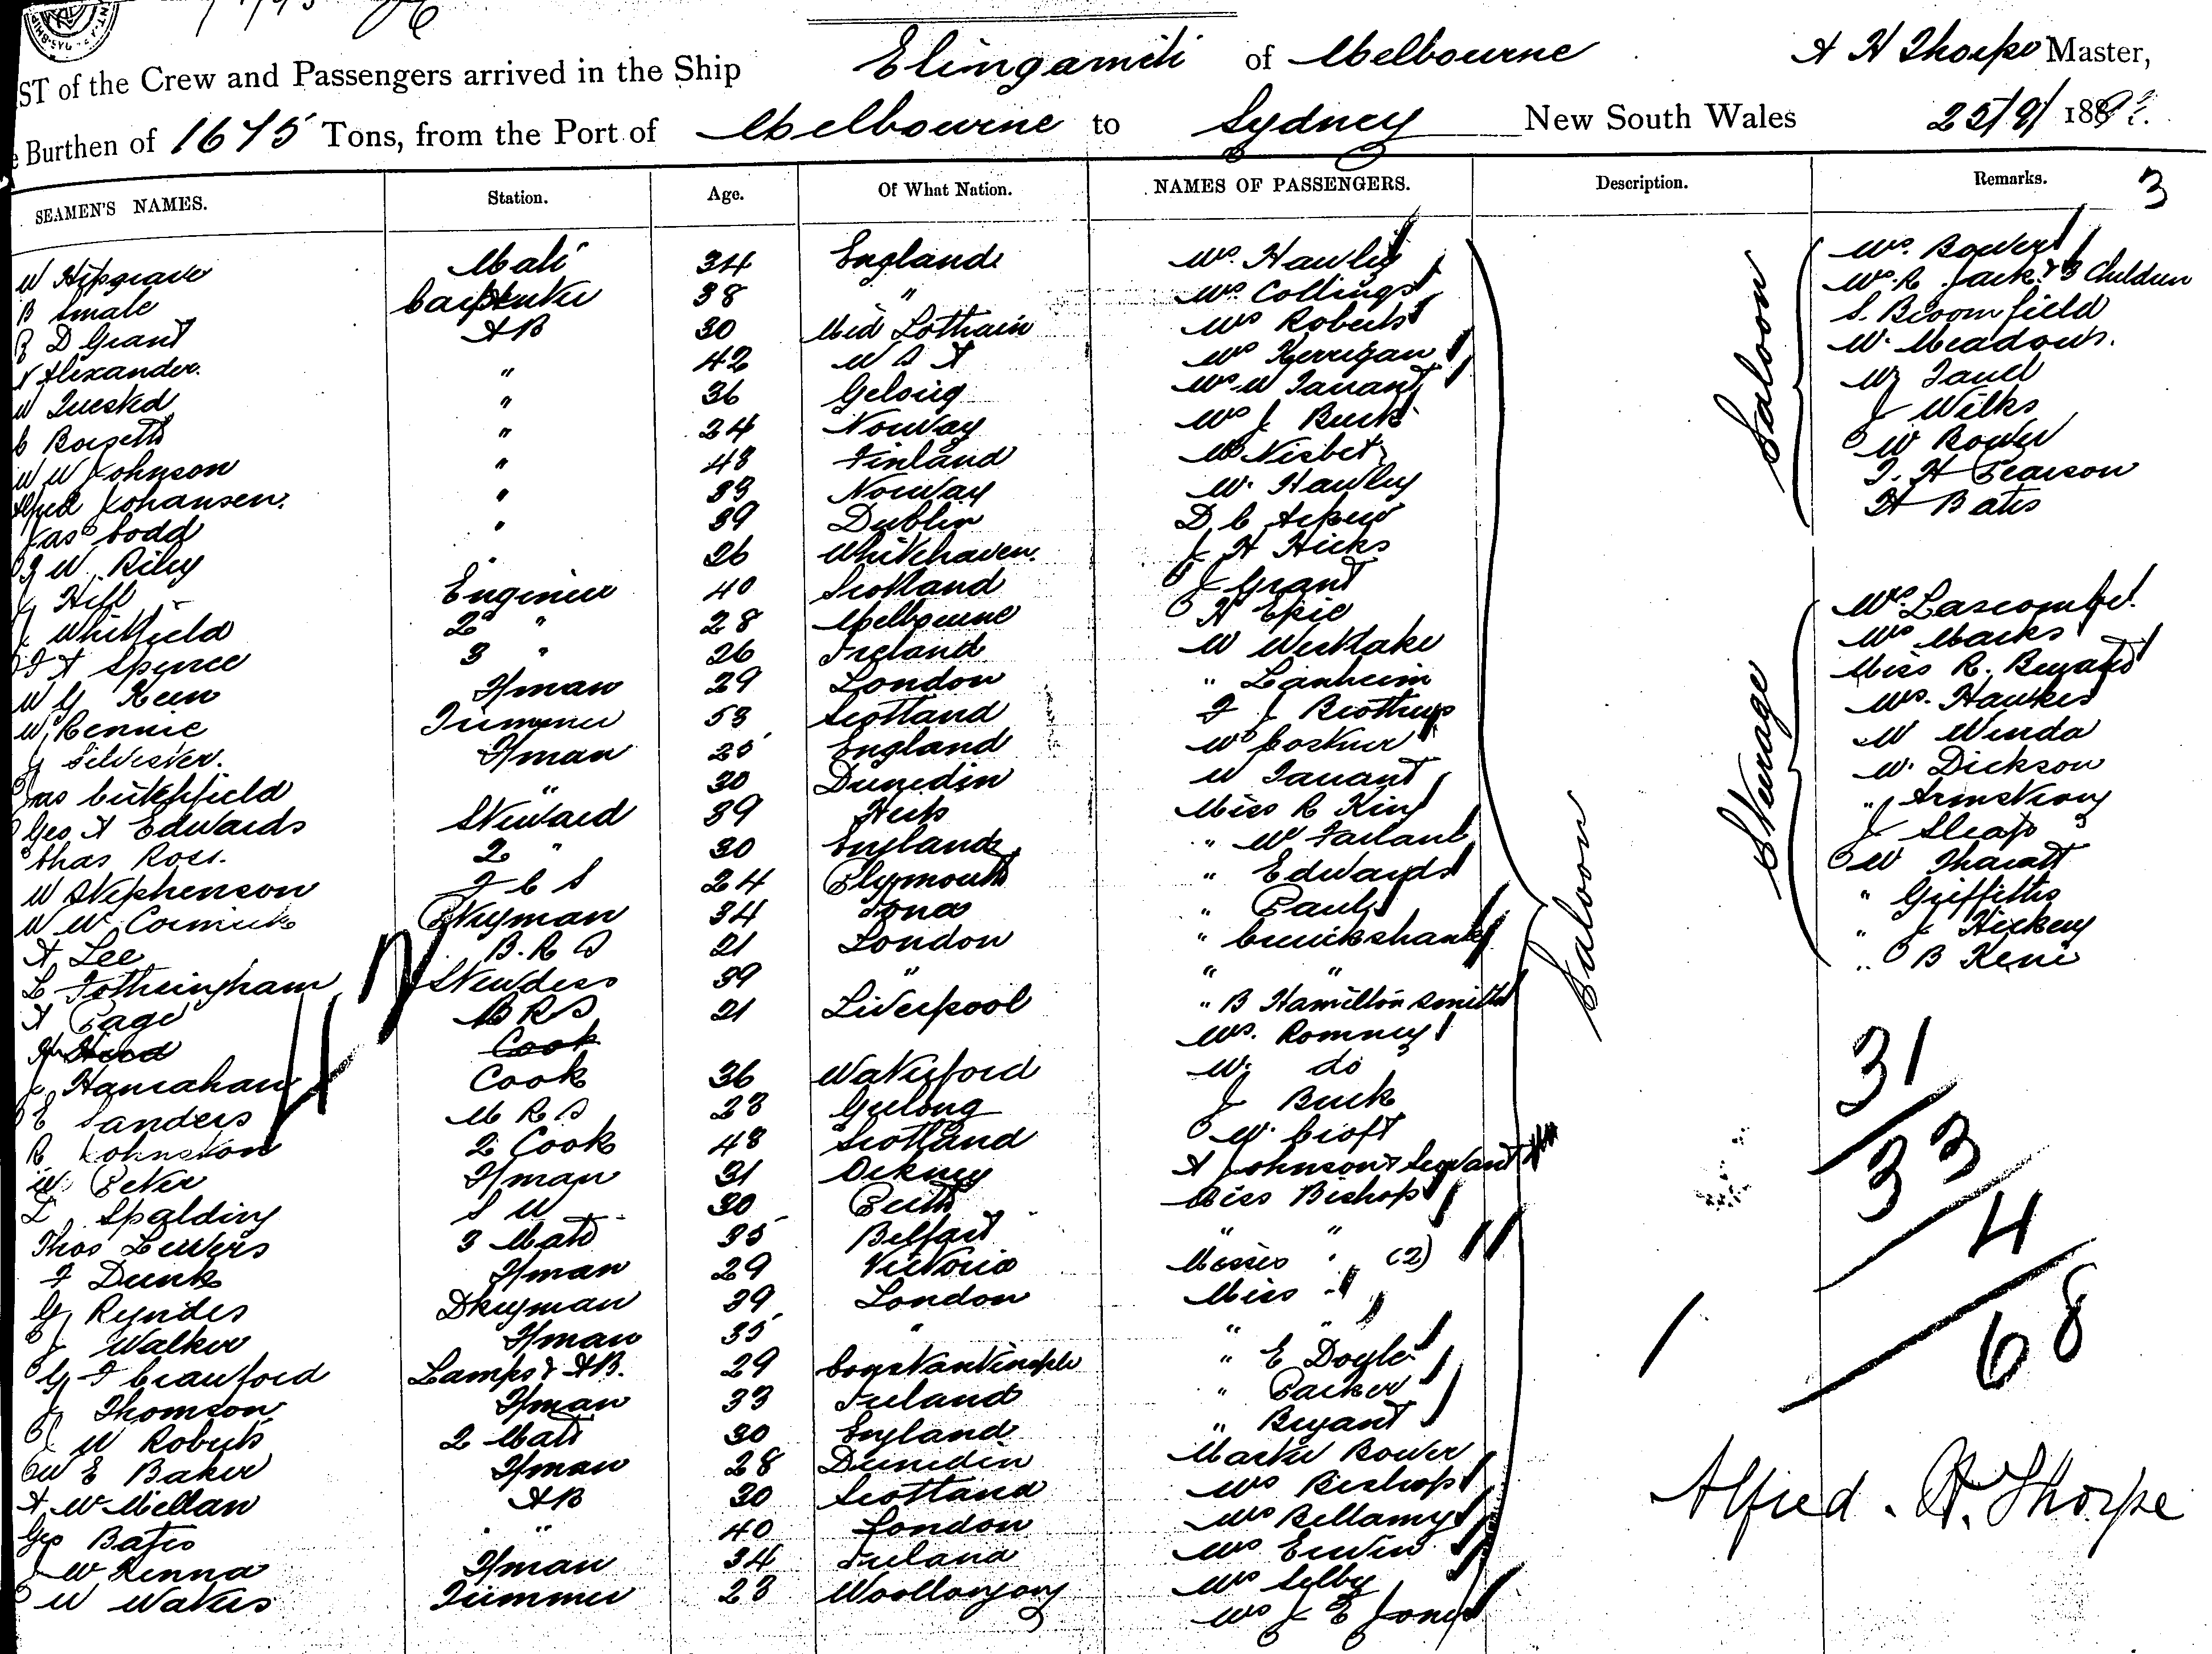 ST of the Crew and Passengers arrived in the Ship Elingamiti of Melbourne A H Thorpe Master,
Burthen of 1675 Tons, from the Port of Melbourne to Sydney New South Wales 25/9/ 188
SEAMEN'S NAMES. Station. Age. Of What Nation. NAMES OF PASSENGERS. Description. Remarks. 3
W Hipgrave Mate 34 England Mrs. Hawley Mrs. Bower
B Smale Carpenter 38 " Mrs. Collings Mrs. R. Jack & 3 Children
D Grant AB 30 Mid Lothain Mrs Roberts S. Broomfield
Alexander. " 42 U S A Mrs Kerrigan W. Meadows.
W Quested " 36 Mrs W Tarrant
C " 24 Norway Mrs J Buck J Wilks
W W Johnson " 48 Finland Nisbet W Bower
Alfred Johansen. " 33 Norway Mr. Hawley T. H Pearson
Jas Codd " 39 Dublin D. C H Bates
J W. Riley " 26 Whitehaven. J H Hicks Saloon
J Hill Engineer 40 Scotland J Grant
J Whitfield 2 " 28 Melbourne H Epie Mrs. Lascombe.
T A Spence 3 " 26 Ireland W Westlake Mrs Marks
W G Keen F/man 29 London " Lanheim Miss R. Bryant
W Rennie Trimmer 53 Scotland T J Brothers Mrs. Hawkes
J Silvester. F/man 25 England Mr Coskner Mr Winda
Jas Cutchfield " 30 Dunedin W Tarrant Mr. Dickson
Geo A Edwards Steward 39 Herts Miss R King " Armstrong
Chas Ross. 2 " 30 England " McFarlane J Sleap
W Stephenson F C S 24 Plymouth " Edwards W
W McCormick P/tryman 34 Iona " Paul " Griffiths
A Lee B. R S 21 London " Cruickshank " J Hickey
L Fotheringham Stewdess 39 " " " " B Kene
A Page M R S 21 Liverpool " B Hamilton Smith Steerage
Cook Mrs. Romney
J Hanrahan Cook 36 Waterford Mr. do 31
E Sanders M R S 23 Geelong J Buck
R Johnston 2 Cook 48 Scotland W. Croft 33
W. Peter F/man 31 Orkney A Johnson & Servant
L Spalding S W 30 Perth Miss Bishop 4
Thos Lewers 3 Mate 35 Belfast " "
F Dunk F/man 29 Victoria Misses " (2) 68
G Ryndes Dkeyman 39 London Miss "
J Walker F/man 35 " " "
G F Crawford Lamps & AB. 29 Constantinople " E Doyle
J Thomson F/man 33 Ireland " Parker
J W Roberts 2 Mate 30 England " Bryant
W E Baker F/man 28 Dunedin Master Bower
A McMillan AB 30 Scotland Mrs Bishop Alfred. H. Thorpe
Geo Bates " 40 London Mrs Bellamy
J McKenna F/man 34 Ireland Mrs Erwin
W Waters Trimmer 23 Woollongong Mrs Selby
Mrs J E Jones
Saloon